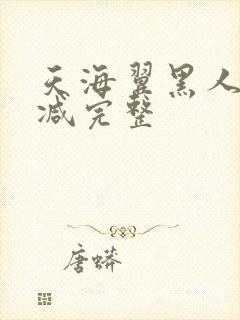 天海翼黑人
减完整
唐蟒